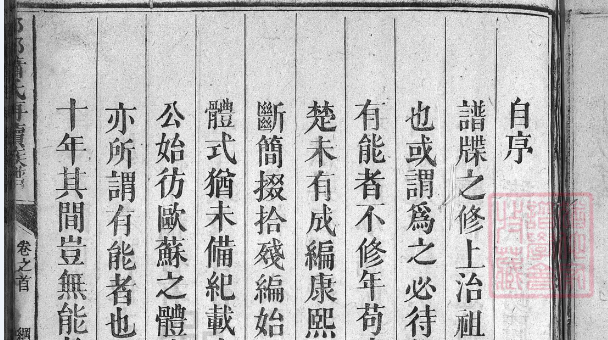 自序
譜牒之修上治祖
也或謂爲之必待
有能者不修年苟
楚未有成編康熙
斷簡掇拾殘編始
體式猶未備紀載
公始彷歐蘇之體
亦所謂有能者也
十年其間豈無能
卷之首